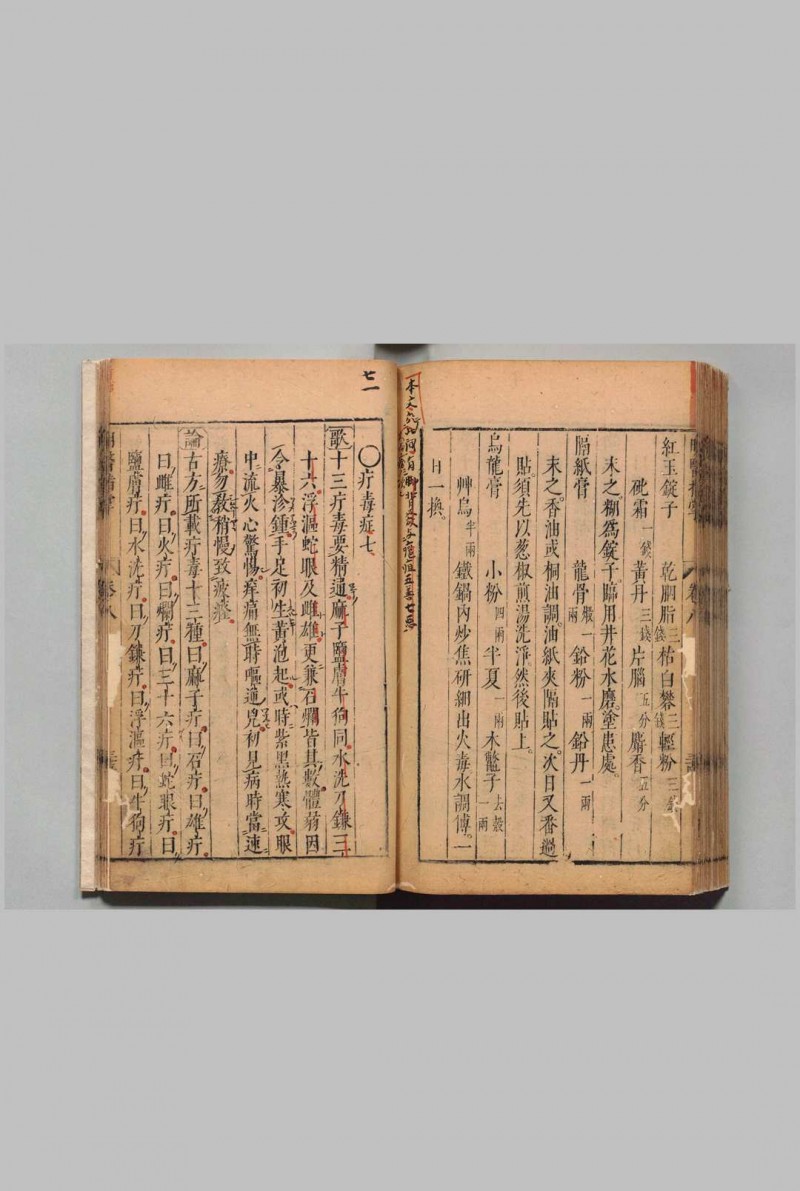 紅玉錠子　乾胭脂三錢枯白礬三錢輕粉三錢
砒霜一錢黃丹三錢片腦五分麝香五分
末之糊爲錠子臨用井花水磨塗患處。
隔紙膏　龍骨煅一兩鉛粉一兩鉛丹一兩
末之。香油或桐油調。油紙夾隔貼之。次日又番過
貼。須先以葱椒煎湯洗淨。然後貼上。
烏龍膏　小粉四兩半夏一兩木鱉子去殼一兩
艸烏半兩鐵鍋內炒焦研細出火毒水調傅。一
日一換。
七一
〇疔毒症七
歌十三疔毒要精通麻子鹽膚牛狗同水洗刀鐮三
十六浮漚蛇眼及雌雄更兼石爛皆其數體蒻因
令暴沴鍾手足初生黃泡起或時紫黑熱寒攻眼
中流火心驚惕痒痛無時嘔逆兇初見病時當速
療勿敎稍慢致疲癃
論古方所載疔毒十三種曰麻子疔曰石疔曰雄疔
曰雌疔曰火疔曰爛疔曰三十六疔曰蛇眼疔曰
鹽膚疔曰水洗疔曰刀鐮疔曰浮漚疔曰牛狗疔